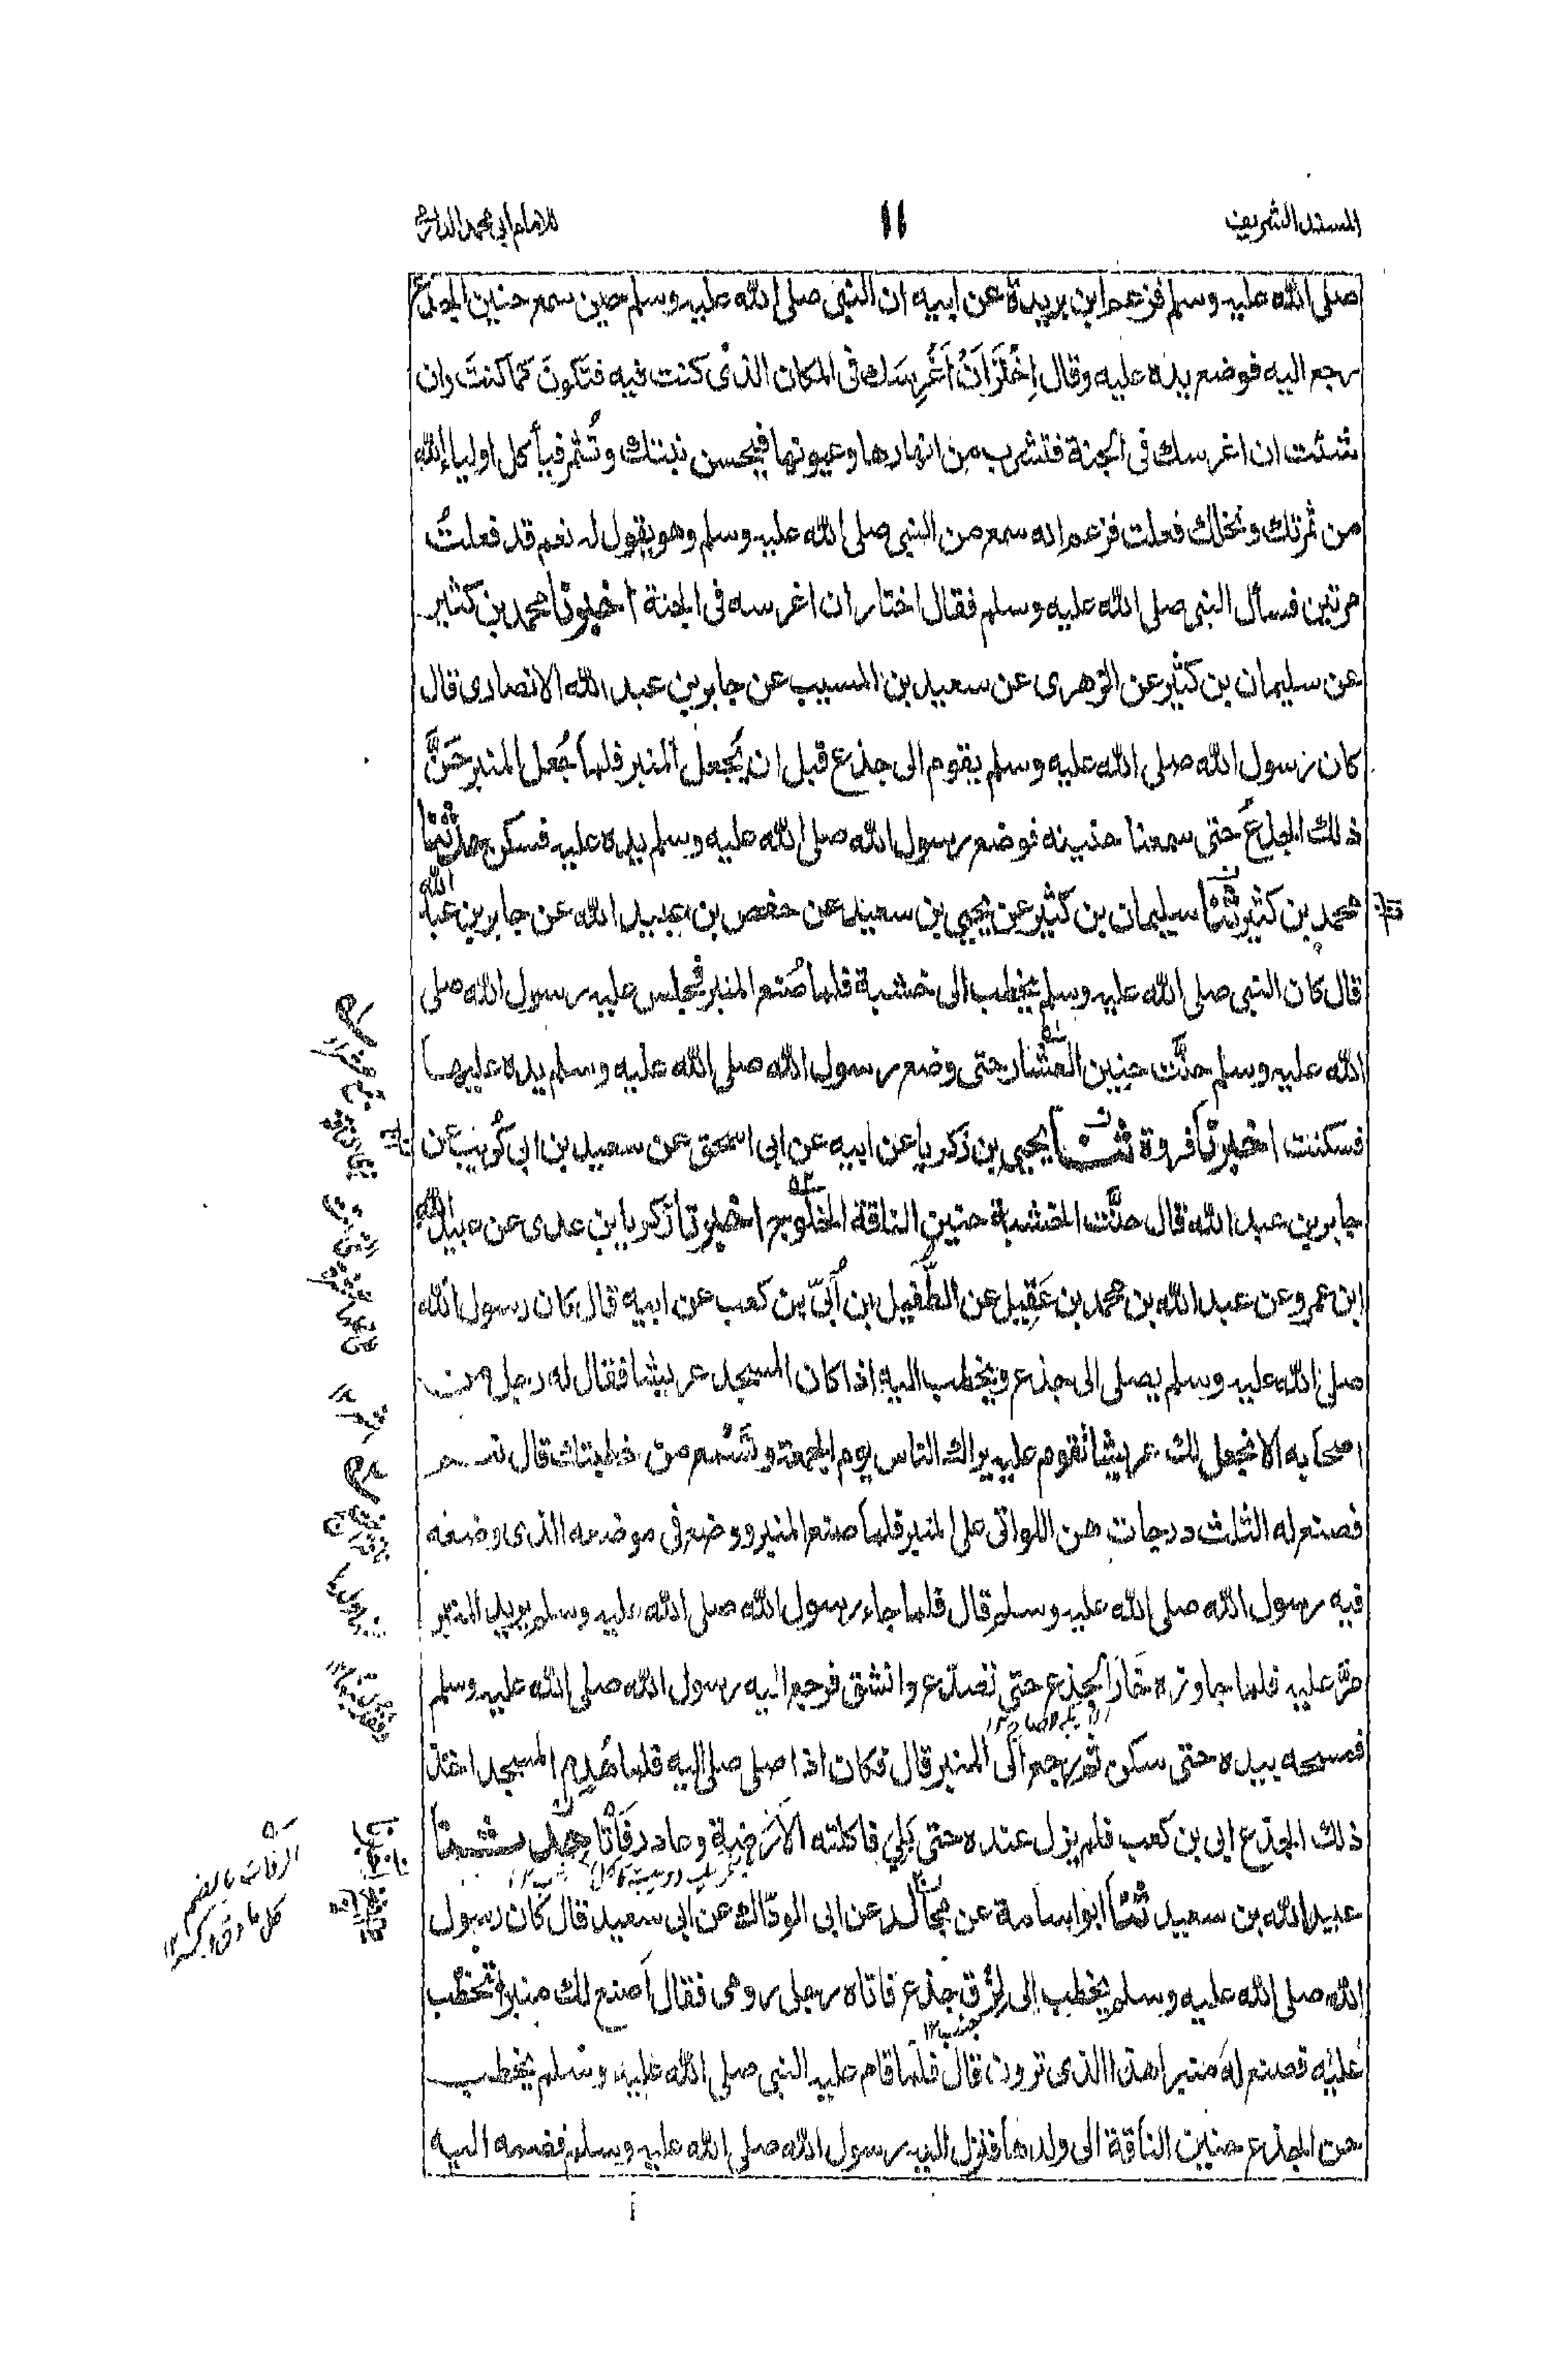 المسند الشريف
١١
للامام ابي محمد الدارمي
صلى الله عليه وسلم فزعم ابن بريدة عن ابيه ان النبي صلى الله عليه وسلم حين سمع حنين الجذع
رجع اليه فوضع يده عليه وقال اِخْتَرْ اَنْ اَغْرِسَك فى المكان الذى كنت فيه فتكونَ كما كنتَ وان
شئت ان اغرسك فى الجنة فتشرب من انهارها وعيونها فيحسن نبتك وتُثمر فيأكل اولياء الله
من ثمرتك ونخلك فعلت فزعم انه سمع من النبي صلى الله عليه وسلم وهو يقول له نعم قد فعلتُ
مرتين فسأل النبي صلى الله عليه وسلم فقال اختار ان اغرسه فى الجنة اخبرنا محمد بن كثير
عن سليمان بن كثير عن الزهرى عن سعيد بن المسيب عن جابر بن عبد الله الانصارى قال
كان رسول الله صلى الله عليه وسلم يقوم الى جذع قبل ان يُجعل المنبر فلما جُعل المنبر حَنَّ
ذلك الجذعُ حتى سمعنا حنينه فوضع رسول الله صلى الله عليه وسلم يده عليه فسكن حدثنا
محمد بن كثير ثنا سليمان بن كثير عن يحيى بن سعيد عن حفص بن عبيد الله عن جابر بن عبد الله
قال كان النبي صلى الله عليه وسلم يخطب الى خشبة فلما صُنع المنبر فجلس عليه رسول الله صلى
الله عليه وسلم حنَّت حنين العشار حتى وضع رسول الله صلى الله عليه وسلم يده عليها
فسكنت اخبرنا فروة ثنا يحيى بن زكريا عن ابيه عن ابى اسحق عن سعيد بن ابى كُريب عن
جابر بن عبد الله قال حنَّت الخشبة حنين الناقة الخلوج اخبرنا زكريا بن عدى عن عبيد الله
ابن عمرو عن عبد الله بن محمد بن عَقِيل عن الطُّفيل بن أُبىّ بن كعب عن ابيه قال كان رسول الله
صلى الله عليه وسلم يصلى الى جذع ويخطب اليه اذا كان المسجد عريشا فقال له رجل من
اصحابه الا نجعل لك عريشا تقوم عليه يراك الناس يوم الجمعة وتُسْمع من خطبتك قال نعم
فصنع له الثلث درجات هن اللواتى على المنبر فلما صنع المنبر ووضع فى موضعه الذى وضعه
فيه رسول الله صلى الله عليه وسلم قال فلما جاء رسول الله صلى الله عليه وسلم يريد المنبر
مَرَّ عليه فلما جاوزه خَارَ الجذع حتى تصدّع وانشق فرجع اليه رسول الله صلى الله عليه وسلم
فمسحه بيده حتى سكن ثم رجع الى المنبر قال فكان اذا صلى صلى اليه فلما هُدِم المسجد اخذ
ذلك الجذع ابى بن كعب فلم يزل عنده حتى بَلِي فاكلته الاَرَضة وعاد رفَاتًا حدثنا
عبيد الله بن سعيد ثنا ابو اسامة عن مجالد عن ابى الودّاك عن ابى سعيد قال كان رسول
الله صلى الله عليه وسلم يخطب الى لِزْق جذع فاتاه رجل رومى فقال اَصنع لك منبرا تخطب
عليه فصنع له منبرا هذا الذى ترون قال فلما قام عليه النبي صلى الله عليه وسلم يخطب
حن الجذع حنين الناقة الى ولدها فنزل اليه رسول الله صلى الله عليه وسلم فضمه اليه
الرفات بالضم
كل ما دق وكسر ١٢